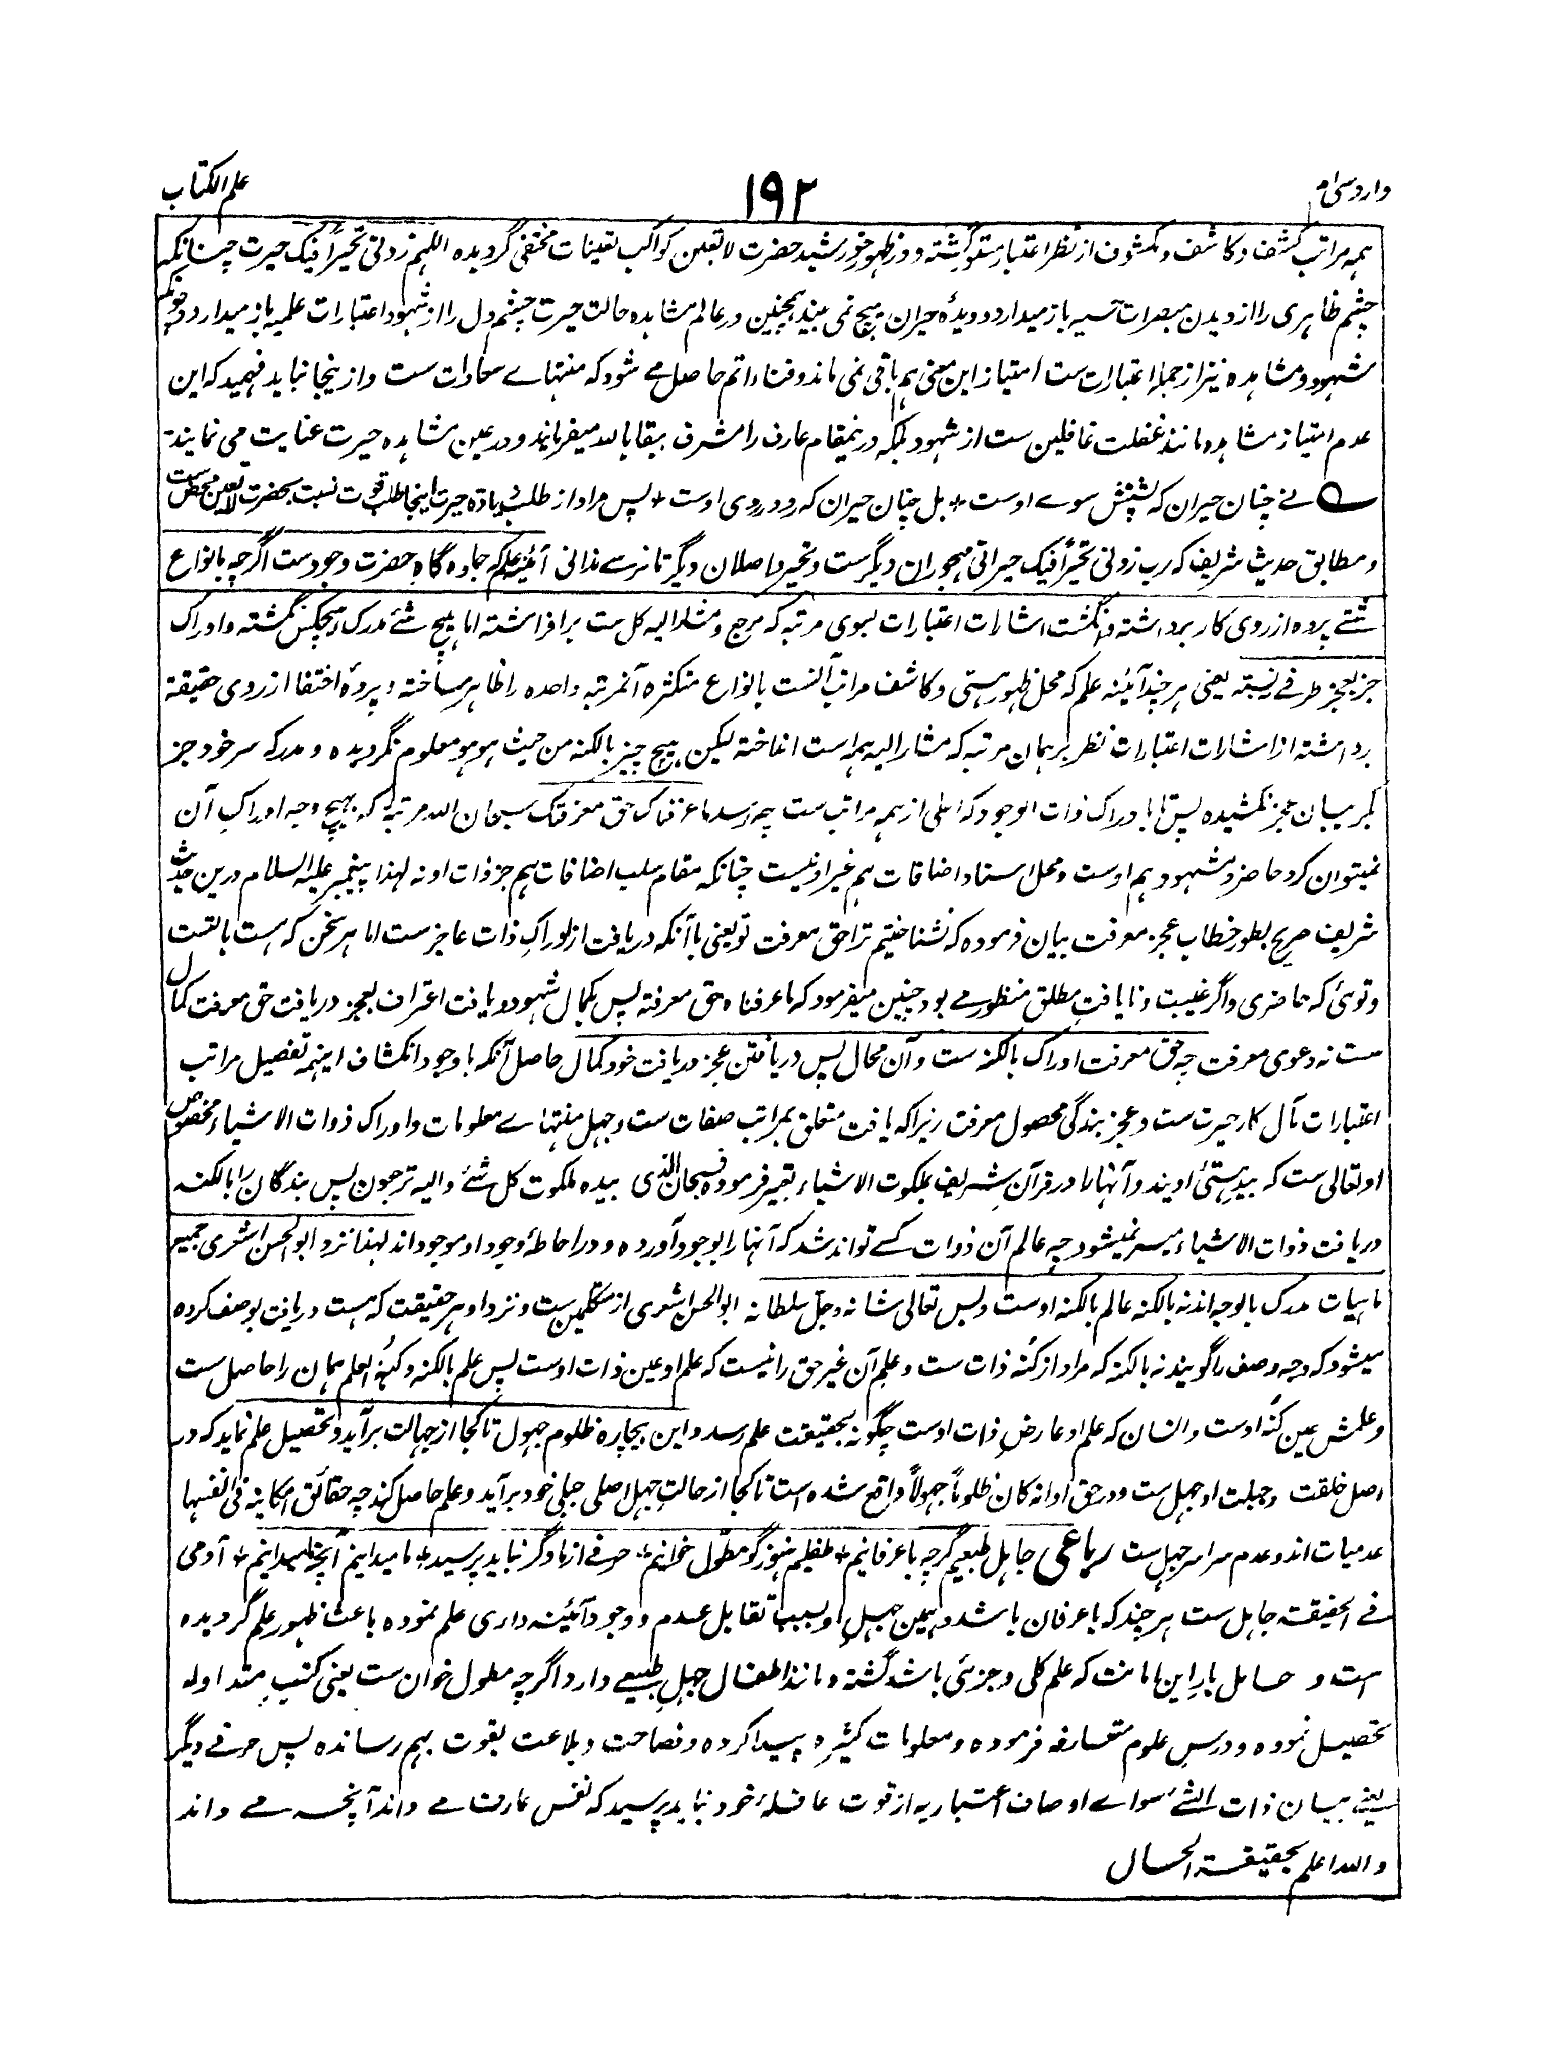 وارد سی ام
۱۹۲
علم الکتاب
ہمہ مراتب کشف و کاشف و مکشوف از نظر اعتبار ستو گشتہ و در ظہور خورشید حضرت لا تعین کواکب تعینات مختفی گردیدہ اللہم زدنی تحیراً فیک حیرت چنانکہ
چشم ظاہری را از دیدن مبصرات حسیہ باز میدارد و دیدۂ حیران ہیچ نمی بیند ہمچنین در عالم مشاہدہ حالت حیرت چشم دل را از شہود اعتبارات علمیہ باز میدارد و چونکہ
شہود و مشاہدہ نیز از جملۂ اعتبارات ست امتیاز این معنی ہم باقی نمی ماند و فناء اتم حاصل مے شود کہ منتہاے سعادات ست و ازینجا نباید فہمید کہ این
عدم امتیاز مشاہدہ مانند غفلت غافلین ست از شہود بلکہ درینمقام عارف را مشرف ببقا باللہ میفرمایند و در عین مشاہدہ حیرت عنایت می نمایند
نے چنان حیران کہ پشتش سوے اوست + بل چنان حیران کہ رو در روی اوست + پس مراد از طلب زیادہ حیرت اینجا طلب قوت نسبت بحضرت لا تعین محض ست
و مطابق حدیث شریف کہ رب زدنی تحیراً فیک حیرانی مہجوران دیگر ست و تحیر واصلان دیگر تا نرسے ندانی آئینۂ علم کہ جلوہ گاہ حضرت وجود ست اگرچہ بانواع
شتے پردہ از روی کار برداشتہ و انگشت اشارات اعتبارات بسوی مرتبہ کہ مرجع و مشار الیہ کل ست برافراشتہ اما ہیچ شئے مدرک ہیچکس نگشتہ و ادراک
جز بعجز طرفے نبستہ یعنی ہر چند آئینہ علم کہ محل ظہور ہستی و کاشف مراتب آنست بانواع متکثرہ آنمرتبہ واحدہ را ظاہر ساختہ و پردۂ اختفا از روی حقیقة
برداشتہ از اشارات اعتبارات نظر بر ہمان مرتبہ کہ مشار الیہ ہمہ است انداختہ لیکن ہیچ چیز بالکنہ من حیث ہو ہو معلوم نگردیدہ و مدرکہ سر خود جز
گریبان عجز نکشیدہ پس تا بادراک ذات الوجود کہ اعلی از ہمہ مراتب ست چہ رسد ما عرفناک حق معرفتک سبحان اللہ مرتبۂ کہ بہیچ وجہ ادراک آن
نمیتوان کرد حاضر و مشہود ہم اوست و محل اسناد اضافات ہم غیر او نیست چنانکہ مقام سلب اضافات ہم جز ذات او نہ لہذا پیغمبر علیہ السلام درین حدیث
شریف صریح بطور خطاب عجز معرفت بیان فرمودہ کہ نشناختیم ترا حق معرفت تو یعنی با آنکہ دریافت از ادراک ذات عاجز ست اما ہر سخن کہ ہست با تست
و توئی کہ حاضری و اگر غیبت و نایافت مطلق منظور مے بود چنین میفرمود کہ ما عرفناہ حق معرفتہ پس کمال شہود و یافت اعتراف بعجز دریافت حق معرفت کمال
ست نہ دعوی معرفت چہ حق معرفت ادراک بالکنہ ست و آن محال پس دریافتن عجز دریافت خود کمال حاصل آنکہ باوجود انکشاف اینہمہ تفصیل مراتب
اعتبارات مآل کار حیرت ست و عجز بندگی محصول معرفت زیرا کہ یافت متعلق بمراتب صفات ست و جہل منتہاے معلومات و ادراک ذوات الاشیاء مخصوص
او تعالی ست کہ بید ہستئ اویند و آنہا را در قرآن شریف بملکوت الاشیاء تعبیر فرمودہ فسبحان الذی بیدہ ملکوت کل شئے و الیہ ترجعون پس بندگان را بالکنہ
دریافت ذوات الاشیاء میسر نمیشود چہ عالم آن ذوات کسے تواند شد کہ آنہا را بوجود آوردہ و در احاطۂ وجود او موجود اند لہذا نزد ابو الحسن اشعری جمیع
ماہیات مدرک بالوجہ اند نہ بالکنہ عالم بالکنہ اوست و بس تعالی شانہ و جل سلطانہ ابو الحسن اشعری از متکلمین ست و نزد او ہر حقیقت کہ ہست دریافت بوصف کردہ
میشود کہ وجہ وصف را گویند نہ بالکنہ کہ مراد از کنہ ذات ست و علم آن غیر حق را نیست کہ علم او عین ذات اوست پس علم بالکنہ و کنہ العلم ہمان را حاصل ست
و علمش عین کنہ اوست و انسان کہ علم او عارض ذات اوست چگونہ بحقیقت علم رسد و این بیچارہ ظلوم جہول تا کجا از جہالت برآید و تحصیل علم نماید کہ در
اصل خلقت و جبلت او جہل ست و در حق او انہ کان ظلوماً جہولاً واقع شدہ است تا کجا از حالت جہل اصلی جبلی خود برآید و علم حاصل کند چہ حقائق امکانیہ فی انفسہا
عدمیات اند و عدم سراسر جہل ست رباعی جاہل طبعیم گرچہ با عرفانیم + طفلیم ہنوز گو مطوّل خوانیم + حرفے از ما دگر نباید پرسید + ما میدانیم آنچہ میدانیم + آدمی
فے الحقیقتہ جاہل ست ہر چند کہ با عرفان باشد و ہمین جہل او بسبب تقابل عدم و وجود آئینہ داری علم نمودہ باعث ظہور علم گردیدہ
است و حامل بار این امانت کہ علم کلی و جزئی باشد گشتہ و مانند اطفال جہل طبیعے دارد اگرچہ مطول خوان ست یعنی کتب متداولہ
تحصیل نمودہ و درس علوم متعارفہ فرمودہ و معلومات کثیرہ پیدا کردہ و فصاحت و بلاغت بقوت بہم رسانده پس حرفے دیگر
یعنے بیان ذات الشئے سواے اوصاف اعتباریہ از قوت عاقلۂ خود نباید پرسید کہ نفس عارف مے داند آنچہ مے داند
و اللہ اعلم بحقیقۃ الحال